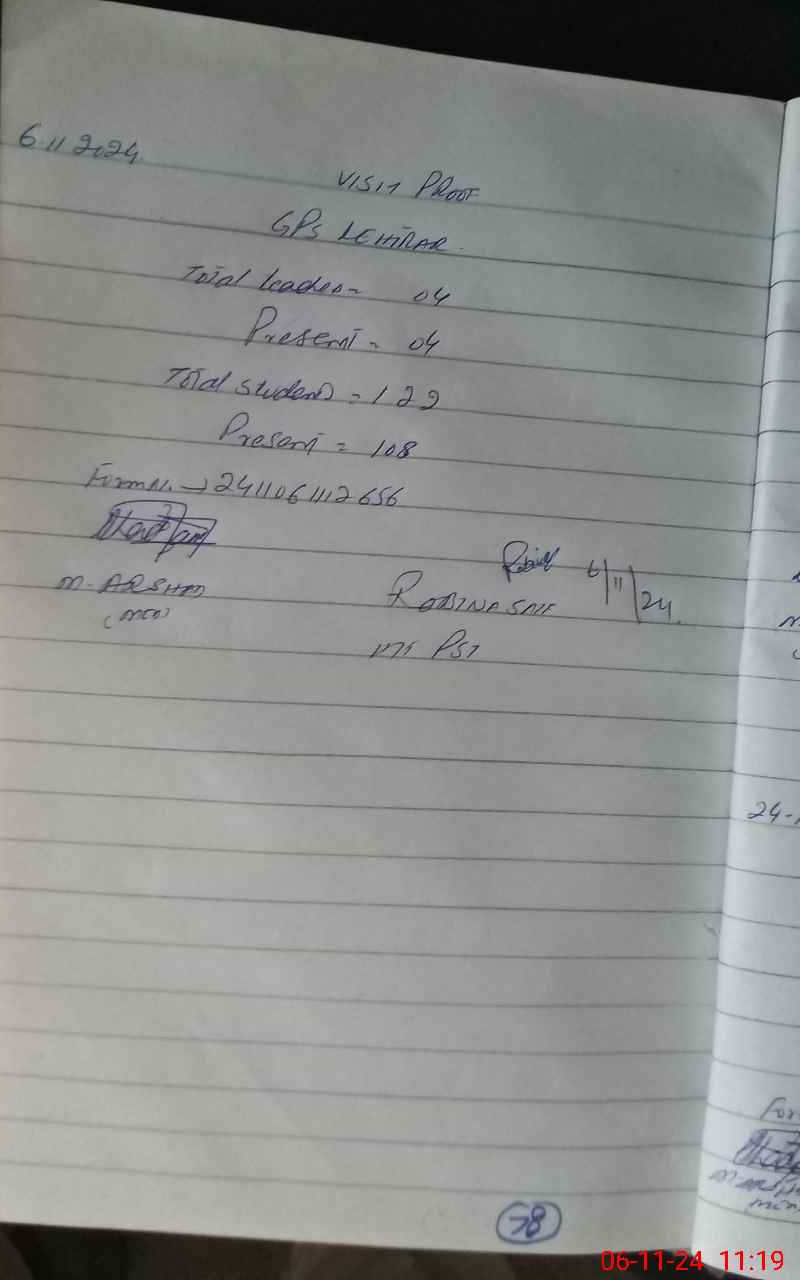 6.11.2024
VISIT PROOF
GPS LEHRAR.
Total teacher = 04
Present = 04
Total student = 122
Present = 108
Form No. → 241106112656
M. ARSHAD
6/11/24
ROBINA SAIF
PST
24-
For
78
06-11-24 11:19